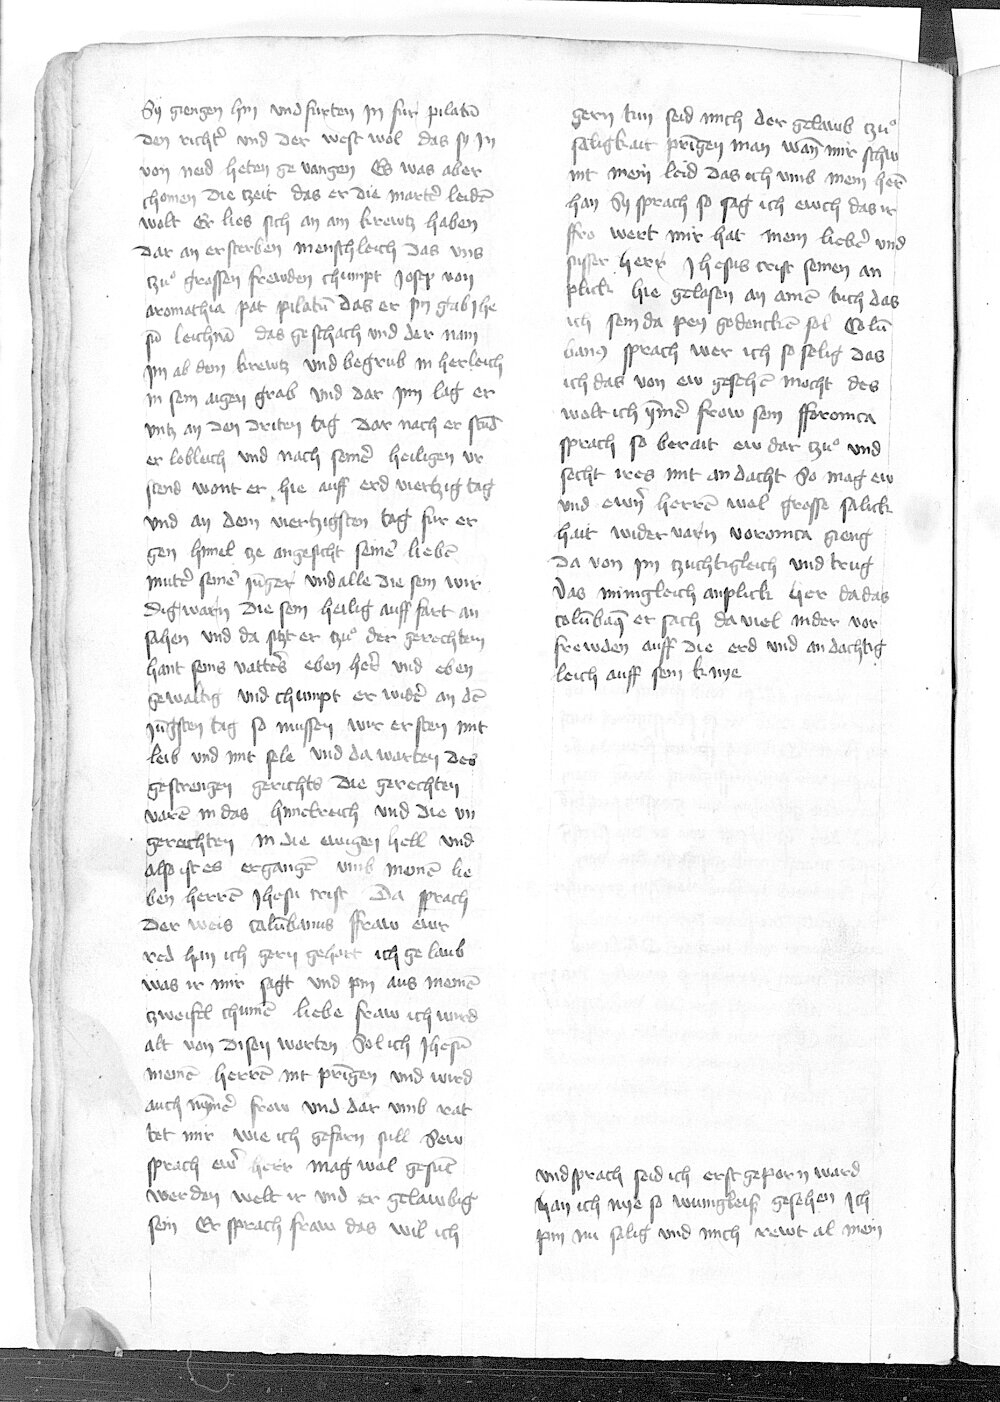 Sy giengen hin und furten in fur pilatū
den richt̄ und der west wol das sy in
von neid heten ge vangen Es was aber
chomen die zeit das er die mart̄ leidē
wolt Er lies sich an ain krewtz haben
dar an ersterben menschleich das uns
tzuͦ grossen frewden chumpt Josep von
aromathia pat pilatū das er im gab Jhe
sū leichnā das geschach und der nam
im ab dem krewtz und begrub in herleich
in sein aigen grab und dar inn lag er
untz an den driten tag Dar nach er stūd
er lobleich und nach seinē heiligen ur
stend wont er hie auff erd viertzig tag
und an dem viertzigsten tag fur er
gen himel tze angesicht seinē liebē
mutē seinē Jūger und alle die sein wir
dig warn die sein heilig auff fart an
sahen und da sitzt er tzuͦ der gerechten
hant seins vatters eben her̄ und eben
gewaltig und chumpt er wid̄ an dē
jūgsten tag so mussen wir ersten mit
leib und mit sele und da warten des
gestrengen gerichts die gerechten
varē in das himelreich und die un
gerechten in die ewigen hell und
also ist es ergangē umb meinē lie
ben herrē Jhesu crist Da sprach
der weis colūbanus ffraw ewr
red han ich gern gehort ich ge laub
was ir mir sagt und pin aus meinē
tzweifel chumē liebe fraw ich wird
alt von disen worten Sol ich Jhesū
meinē herrē nit prīgen und wird
auch nȳmē frow und dar umb rat
tet mir wie ich gefarn sull Sew
sprach ew̄ herr mag wol gesūt
werden welt ir und er gelawbig
sein Er sprach fraw das wil ich
gern tun seid mich der gelaub tzuͦ
saligkait prīgen man wan̄ mir schw
nt mein leid das ich umb mein her̄
han Sy sprach so sag ich ewch das ir
ffro wert mir hat mein lieb̄ und
susser herr Jhesus crist seinen an
plick hie gelasen an ainē tuch das
ich sein da pey gedenckē sol Colū
banꝰ sprach wer ich so selig das
ich das von ew gesehē mocht des
wolt ich ȳmē frow sein fforonica
sprach so berait ew dar tzuͦ und
secht ires mit andacht So mag ew
und ewr̄ herrē wol grosse salick
hait wider varn voronica gieng
da von im tzuchtigleich und trug
das minigleich anplick her da das
colūbanꝰ er sach da viel in der vor
frewden auff die erd und andachtig
leich auff sein knye
und sprach seid ich erst geporn ward
han ich nye so wunigleich gesehen Ich
pin nu salig und mich rewt al mein